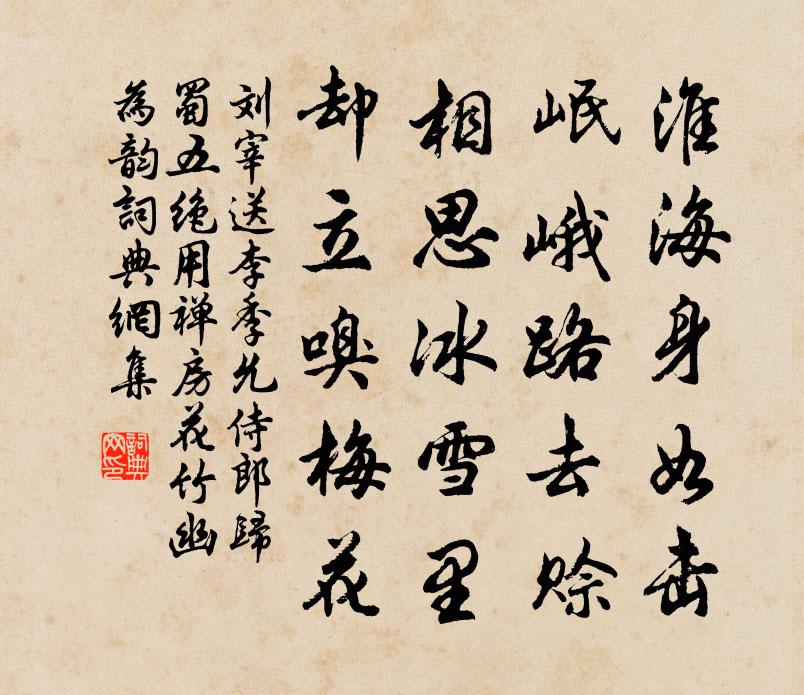 淮海身如击
岷峨路去赊
相思冰雪里
却立嗅梅花
刘宰送李季允侍郎歸
蜀五绝用禅房花竹幽
為韵詞典網集
詞典网印